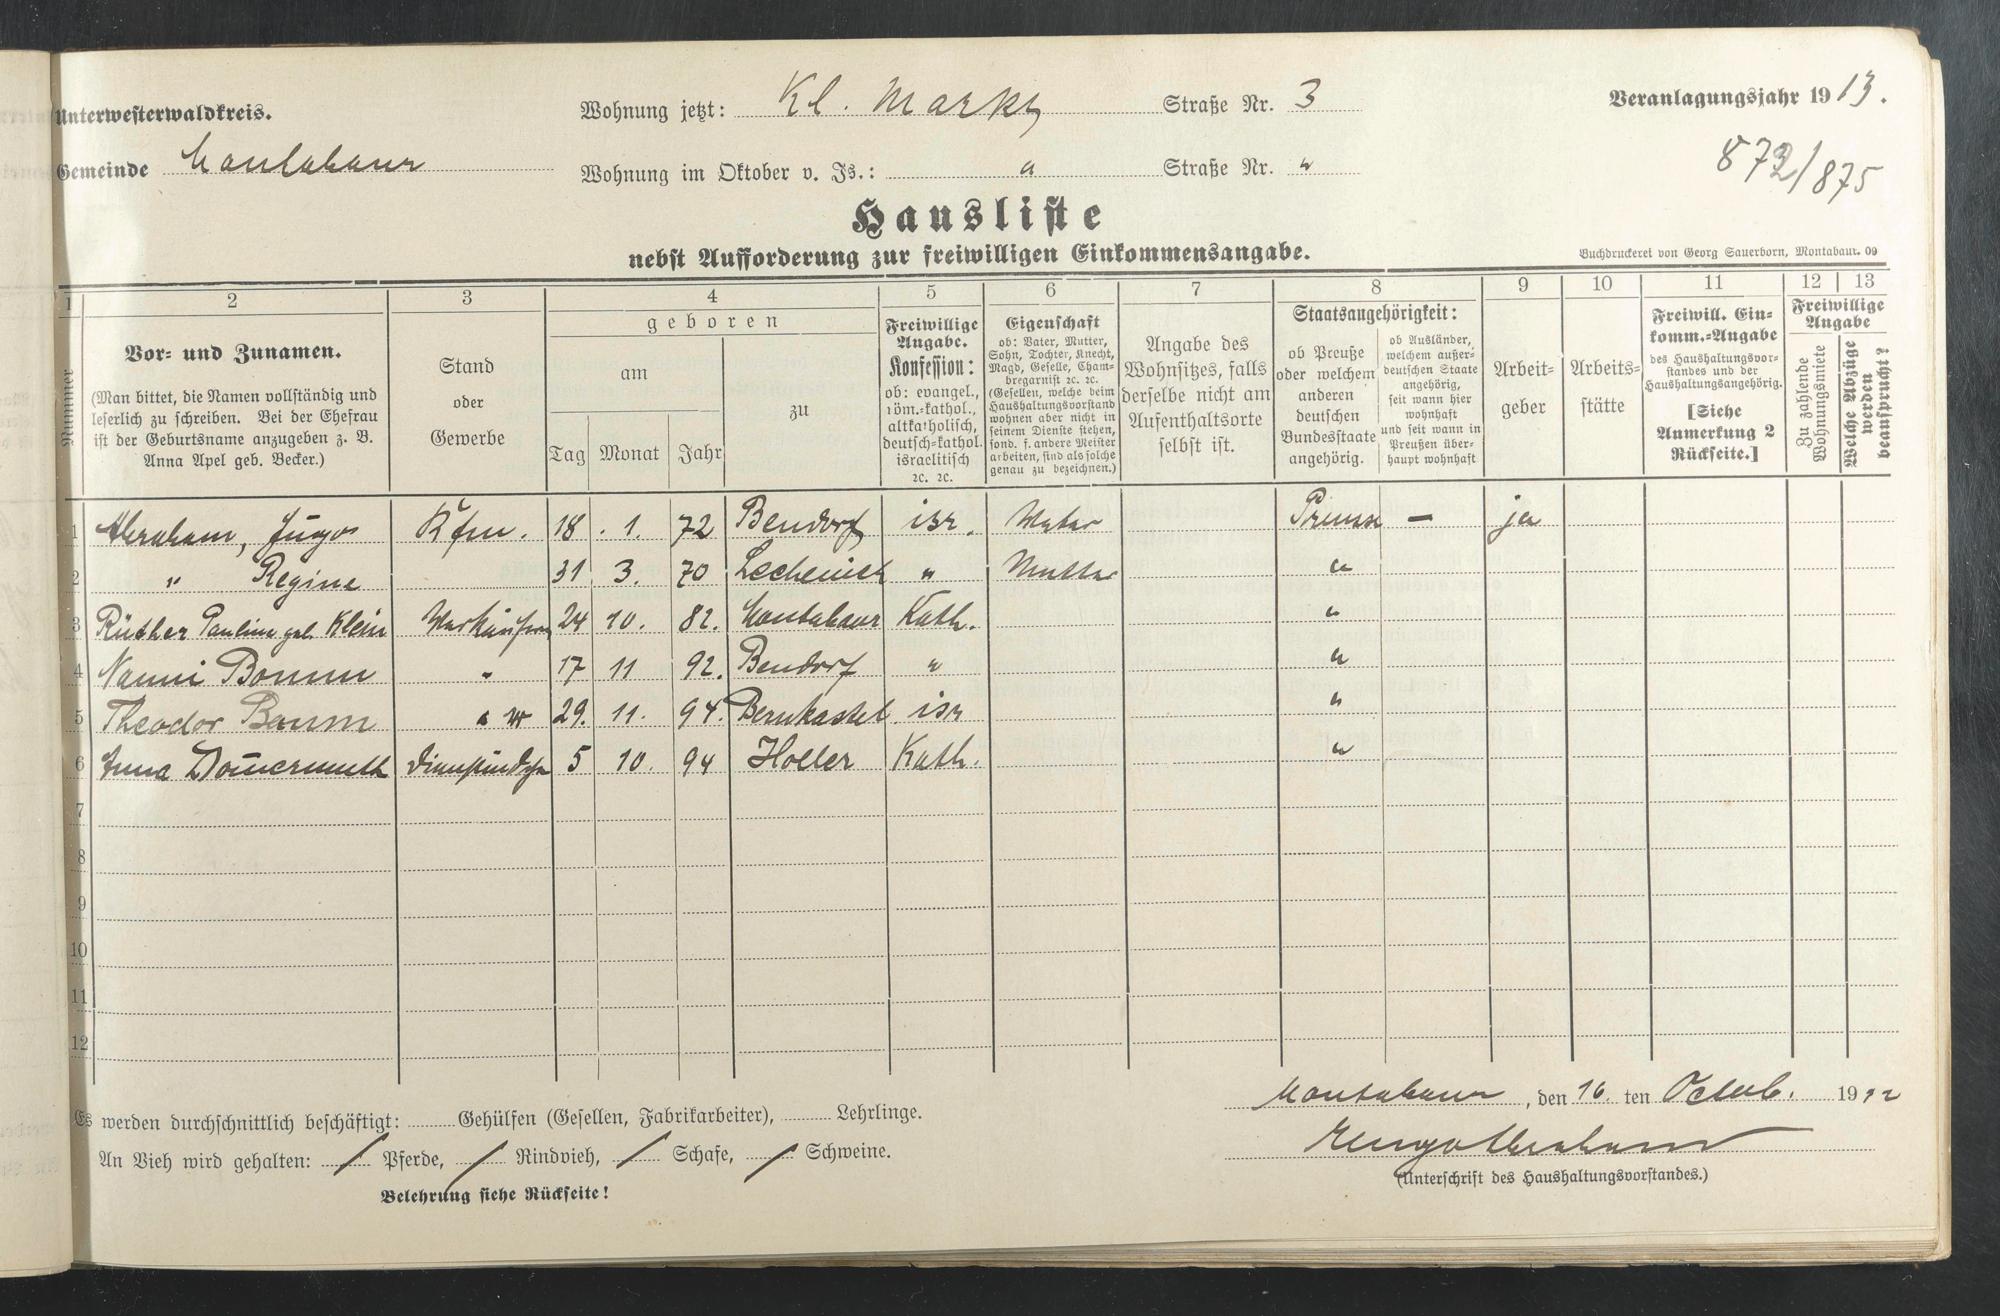 Unterwesterwaldkreis.
Wohnung jetzt: Kl. Markt Straße Nr. 3
Veranlagungsjahr 1913.
Gemeinde Montabaur
Wohnung im Oktober v. Js.: " Straße Nr. "
872/875
Hausliste
nebst Aufforderung zur freiwilligen Einkommensangabe.
Buchdruckerei von Georg Sauerborn, Montabaur. 09
1 2 3 4 5 6 7 8 9 10 11 12 13
Nummer
Vor- und Zunamen.
(Man bittet, die Namen vollständig und
leserlich zu schreiben. Bei der Ehefrau
ist der Geburtsname anzugeben z. B.
Anna Apel geb. Becker.)
Stand
oder
Gewerbe
geboren
am
Tag Monat Jahr
zu
Freiwillige
Angabe.
Konfession:
ob: evangel.,
röm.-kathol.,
altkatholisch,
deutsch-kathol.
israelitisch
2c. 2c.
Eigenschaft
ob: Vater, Mutter,
Sohn, Tochter, Knecht,
Magd, Geselle, Cham-
bregarnist 2c. 2c.
(Gesellen, welche beim
Haushaltungsvorstand
wohnen aber nicht in
seinem Dienste stehen,
sond. f. andere Meister
arbeiten, sind als solche
genau zu bezeichnen.)
Angabe des
Wohnsitzes, falls
derselbe nicht am
Aufenthaltsorte
selbst ist.
Staatsangehörigkeit:
ob Preuße
oder welchem
anderen
deutschen
Bundesstaate
angehörig.
ob Ausländer,
welchem außer-
deutschen Staate
angehörig,
seit wann hier
wohnhaft
und seit wann in
Preußen über-
haupt wohnhaft
Arbeit-
geber
Arbeits-
stätte
Freiwill. Ein-
komm.-Angabe
des Haushaltungsvor-
standes und der
Haushaltungsangehörig.
[Siehe
Anmerkung 2
Rückseite.]
Freiwillige
Angabe
Zu zahlende
Wohnungsmiete
Welche Abzüge
werden
beansprucht?
1 Abraham, Hugo Kfm. 18. 1. 72 Bendorf isr. Vater Preusse — ja
2 " Regine 31 3. 70 Lechenich " Mutter "
3 Rüther Pauline geb. Klein Verkäuferin 24 10. 82. Montabaur Kath. "
4 Nanni Bomm " 17 11 92. Bendorf " "
5 Theodor Baum " 29. 11. 94. Bernkastel isr "
6 Anna Dommermuth Dienstmädchen 5 10. 94 Holler Kath. "
7
8
9
10
11
12
Montabaur, den 16. ten Octob. 1912
Hugo Abraham
(Unterschrift des Haushaltungsvorstandes.)
Es werden durchschnittlich beschäftigt: Gehülfen (Gesellen, Fabrikarbeiter), Lehrlinge.
An Vieh wird gehalten: / Pferde, / Rindvieh, / Schafe, / Schweine.
Belehrung siehe Rückseite!